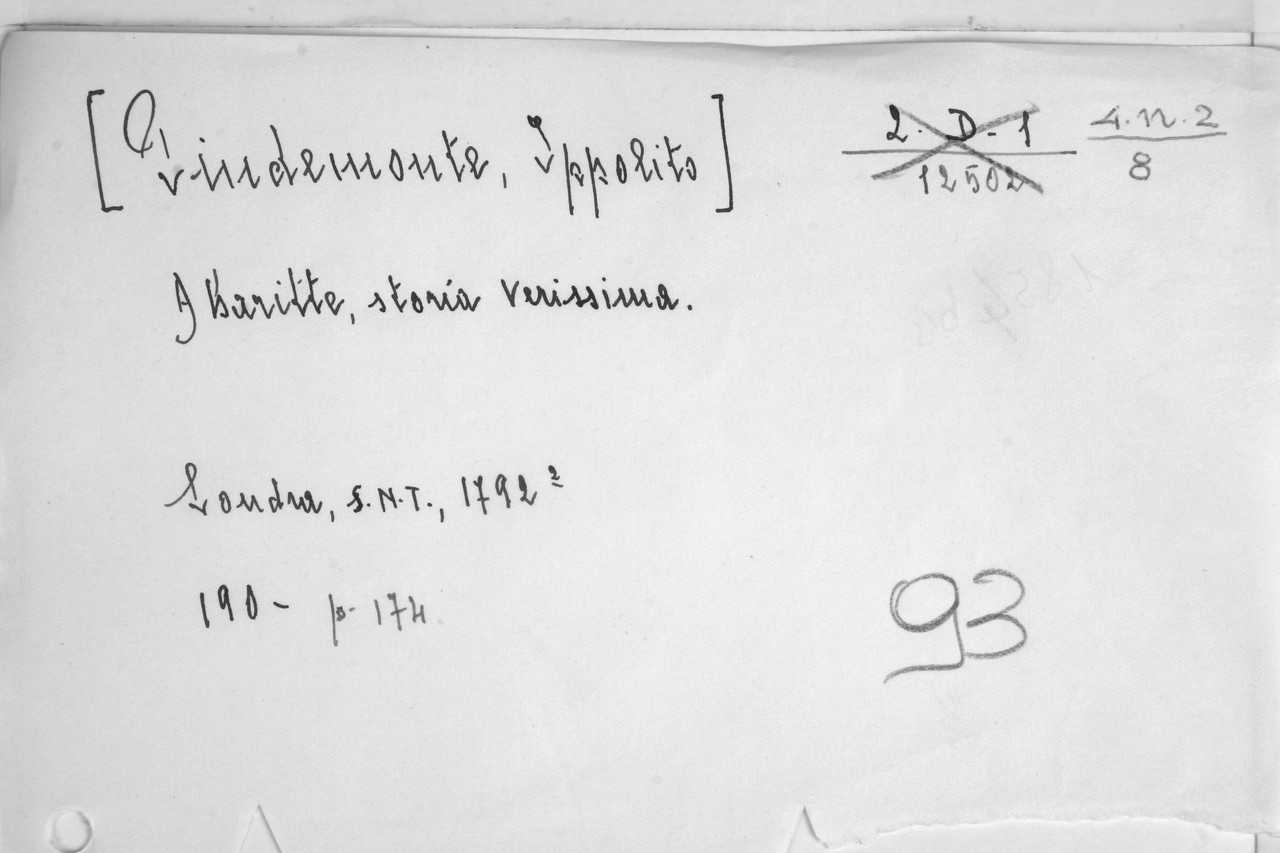 [Pindemonte, Ippolito]
2. D-1
12502
4.n.2
8
Abaritte, storia verissima.
Londra, S.N.T., 1792²
190- p. 174
93